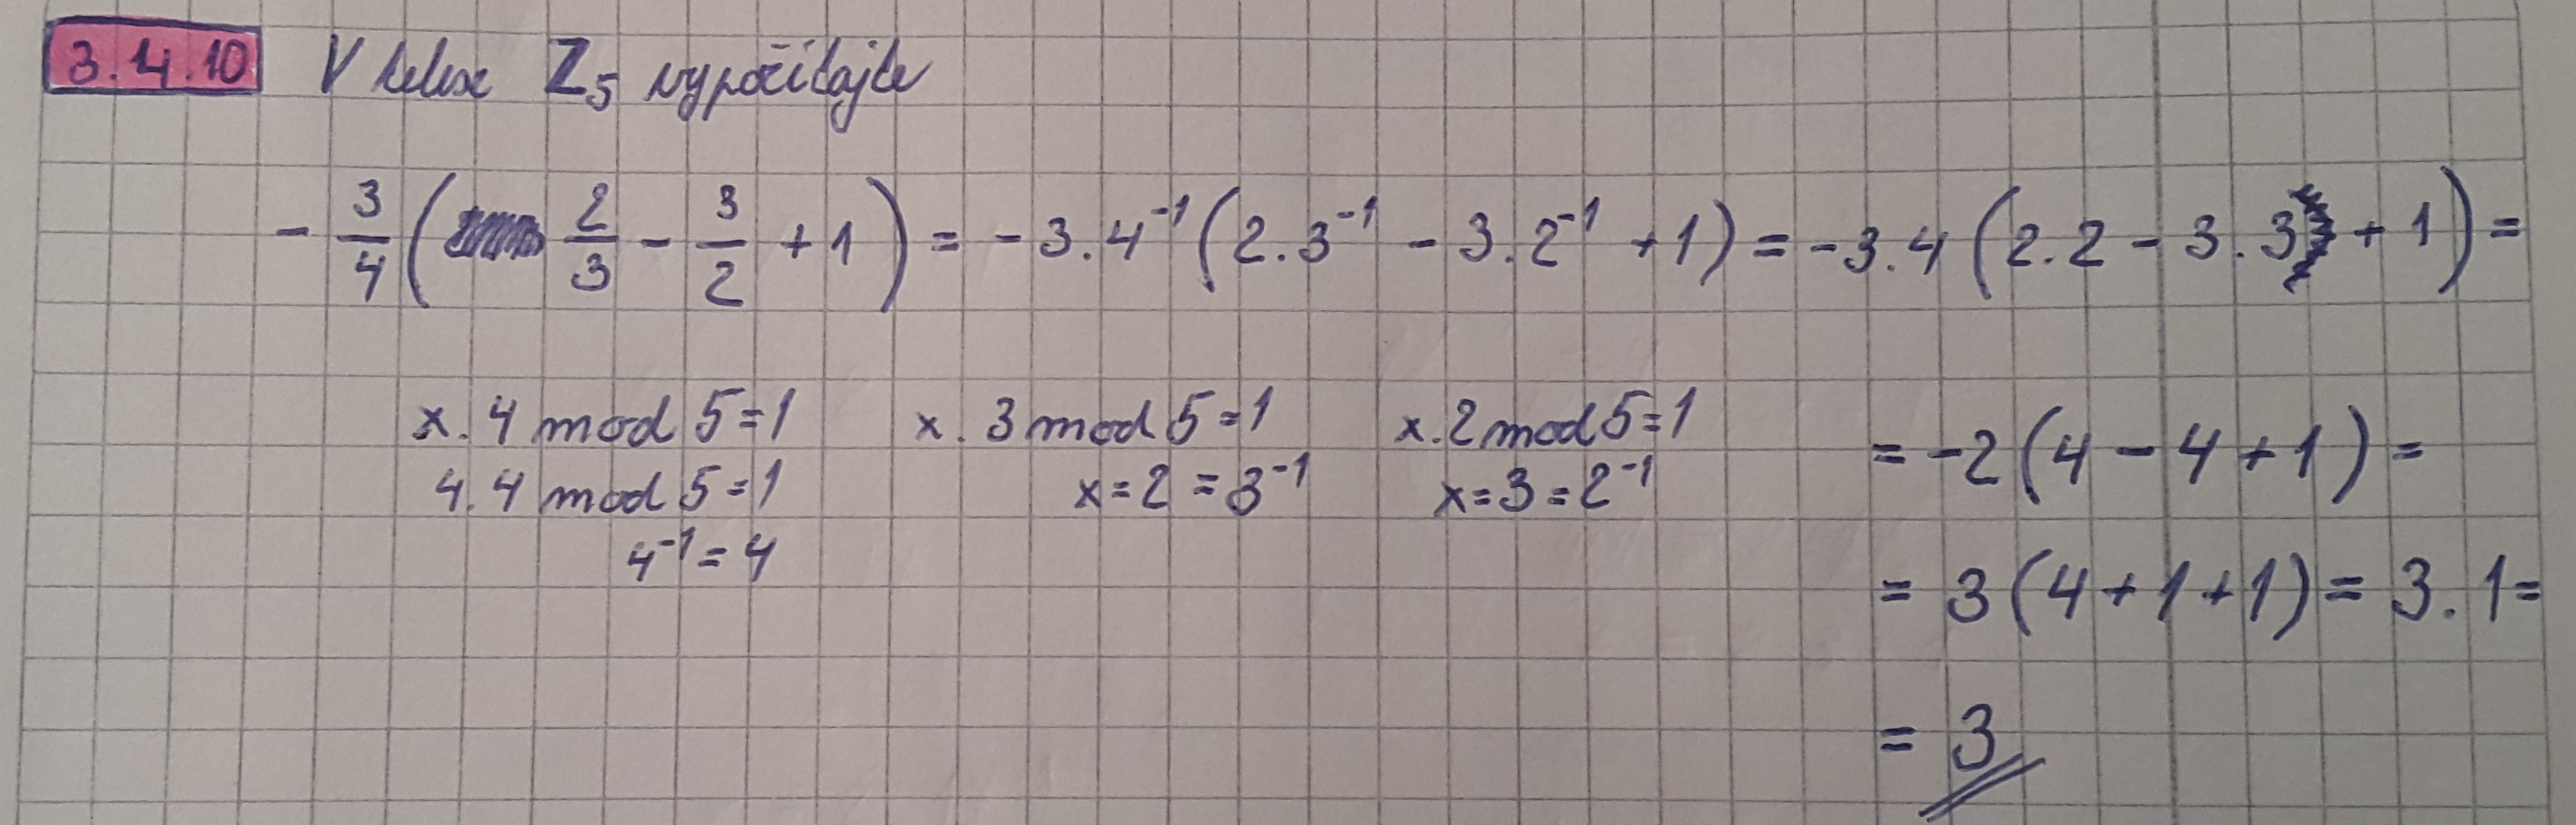 3.14.10 V telese Z₅ vypočítajte
- 3/4 ( 2/3 - 3/2 + 1 ) = - 3.4⁻¹ (2.3⁻¹ - 3.2⁻¹ + 1) = - 3.4 (2.2 - 3.3 + 1) =
x.4 mod 5 = 1 x.3 mod 5 = 1 x.2 mod 5 = 1 = -2 (4 - 4 + 1) =
4.4 mod 5 = 1 x = 2 = 3⁻¹ x = 3 = 2⁻¹
4⁻¹ = 4 = 3 (4 + 1 + 1) = 3.1 =
= 3